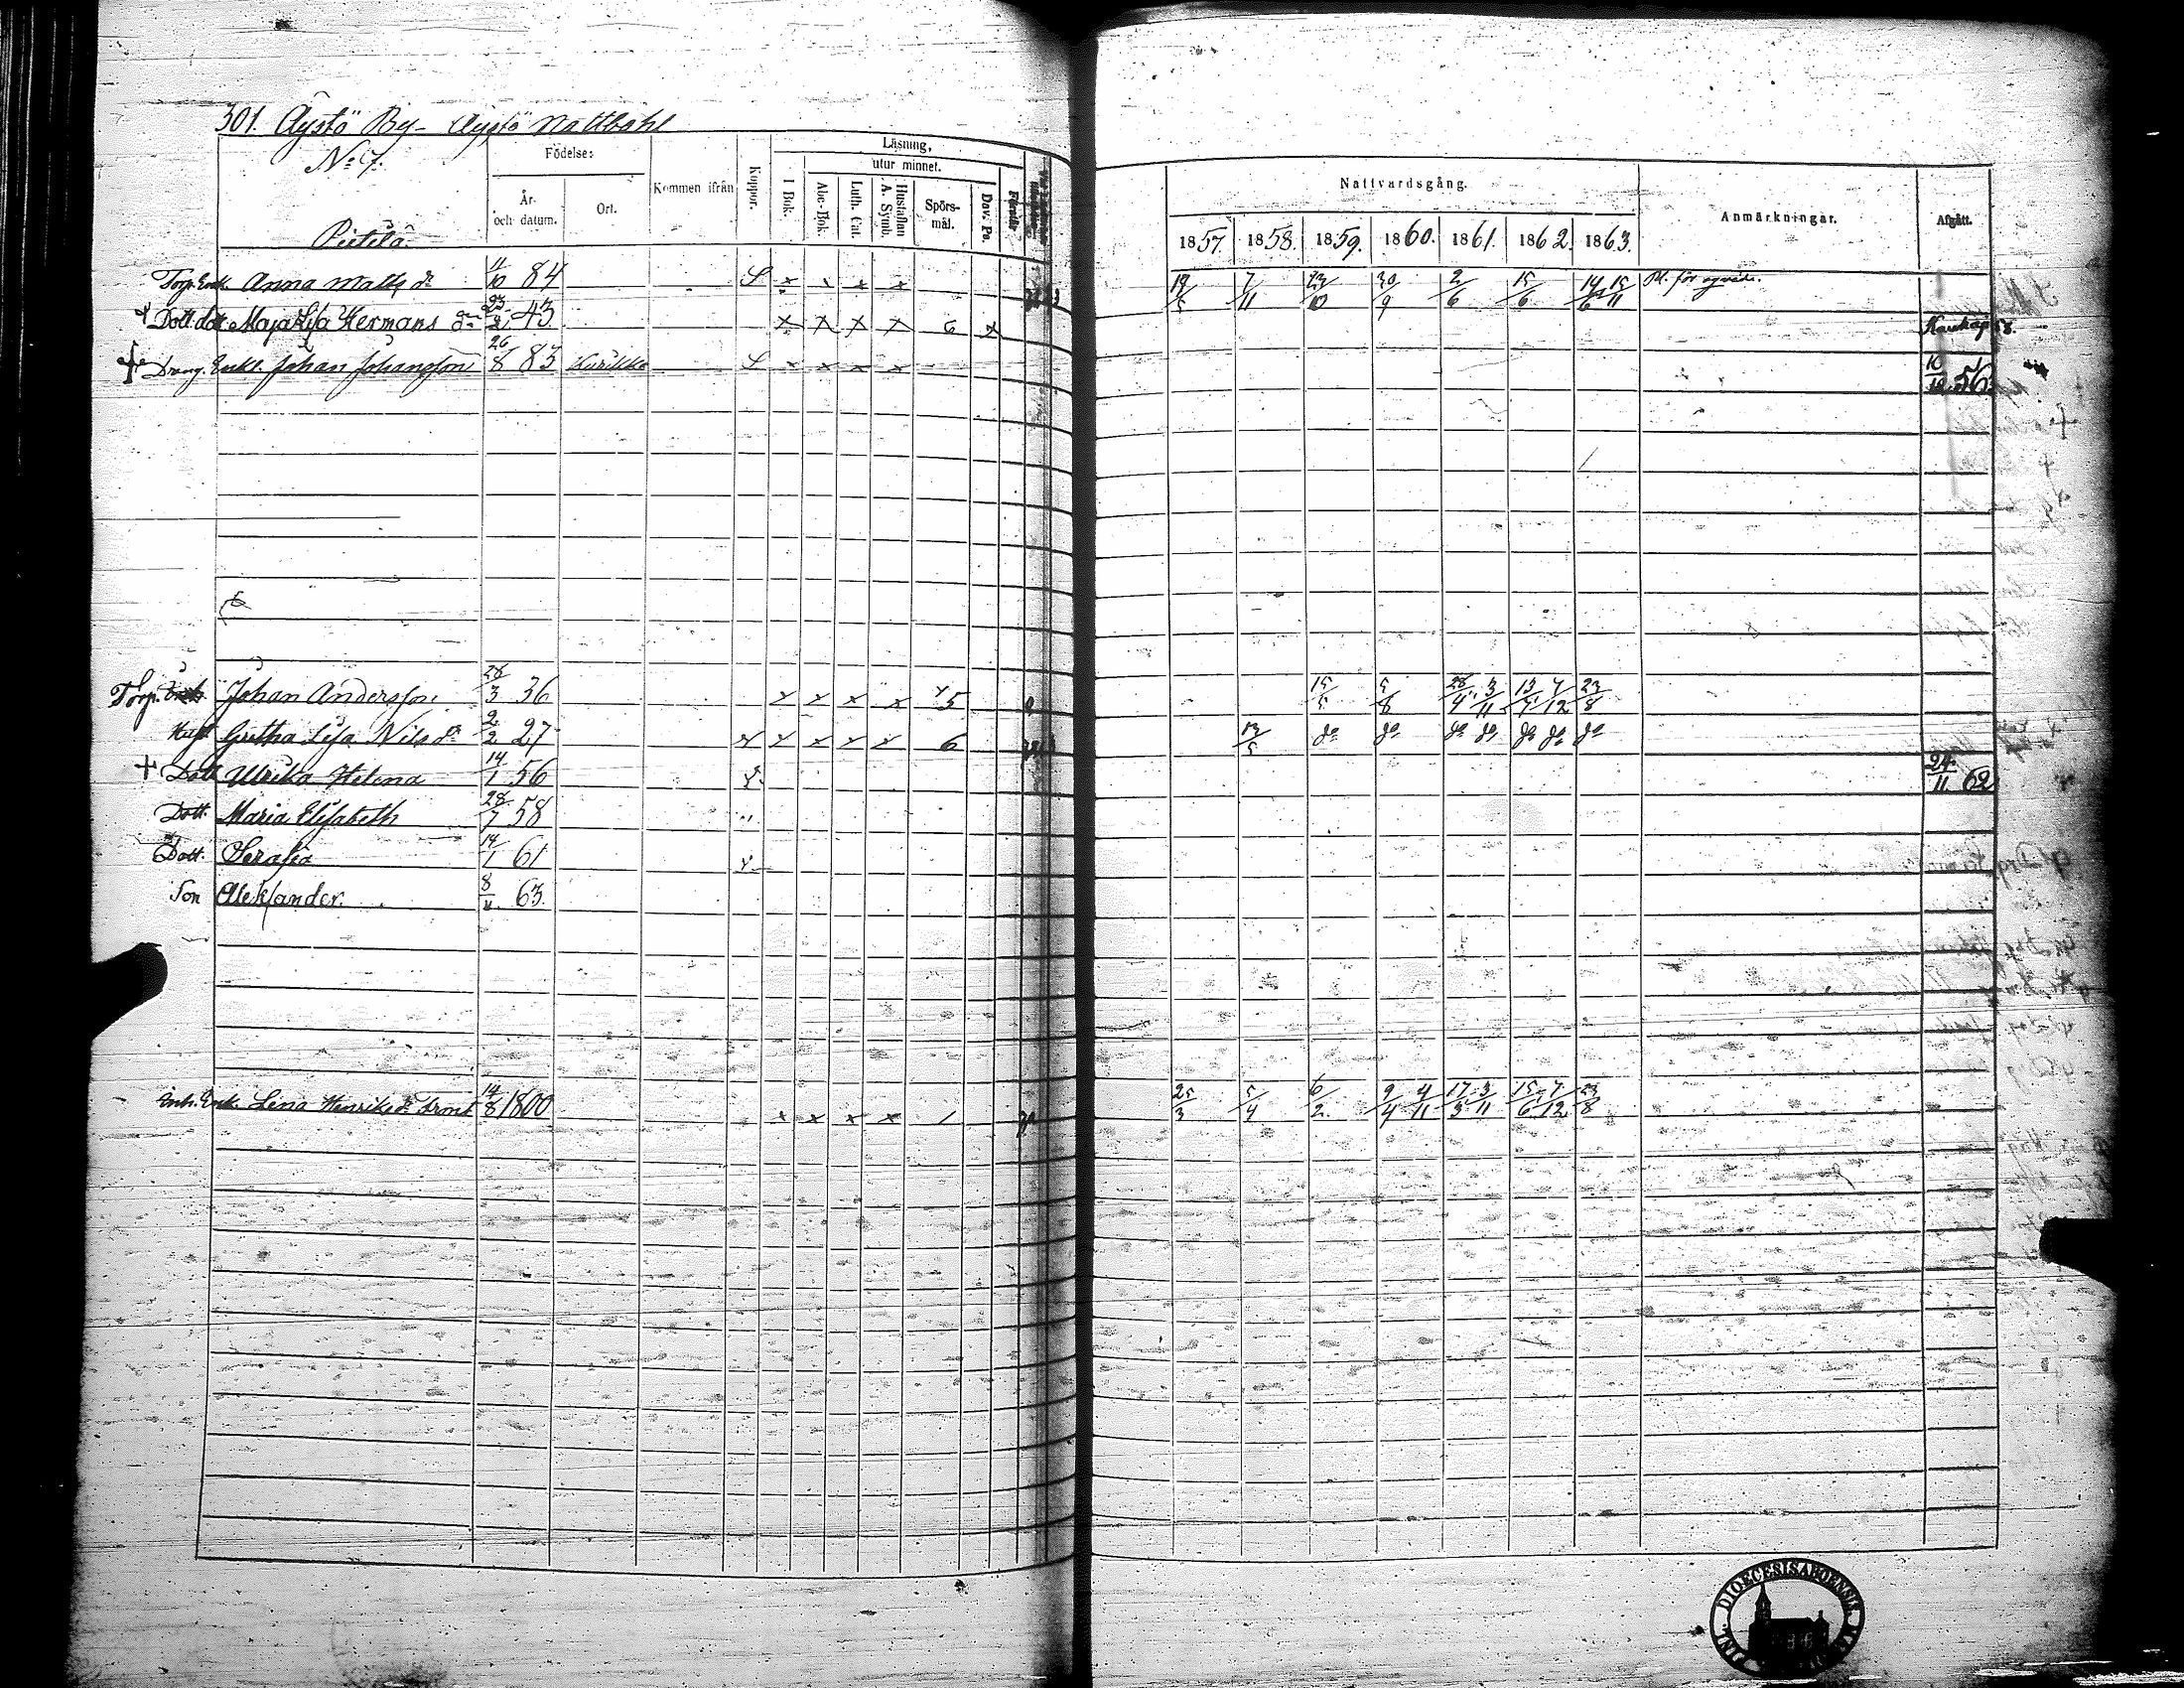 301. Äystö By - Äystö Nattbohl
No 7.
Pietilä.
Födelse:
År- och datum.
Ort.
Kommen ifrån
Koppor.
Läsning,
utur minnet.
I Bok.
Abc-Bok.
Luth. Cat.
Hustaflan A. Symb.
Spörsmål.
Dav. Ps.
Nattvardsgång.
1857 1858. 1859. 1860. 1861. 1862. 1863.
Anmärkningar.
Afgått.
Torp. Enk. Anna Matts dr 11/10 84 S x x x x 19/5 7/11 23/10 30/9 2/6 15/6 14/6 15/11
+ Dott. dott. Maja Lisa Hermans dr 43 x x x x 6 x 58.
Enkl. Johan Johansson 26/8 83 Kurikka S x x x x 10/12 56
Torp. Johan Andersson 28/3 36 x x x x 5 15/5 5/8 28/4 3/11 13/4 7/12 23/8
Hust Gretha Lisa Nils dr 2/2 27 x x x x 6 13/5 do do do do do do do
+ Dott Ulrika Helena 14/1 56 24/11 62
Dott. Maria Elisabeth 28/7 58
Dott. Serafia 14/1 61
Son Aleksander. 8/11 63.
Inh. Enk. Lena Henriks dr 14/8 1800 x x x x 1 25/3 5/4 6/2 9/4 4/11 17/3 3/11 15/6 7/12 23/8